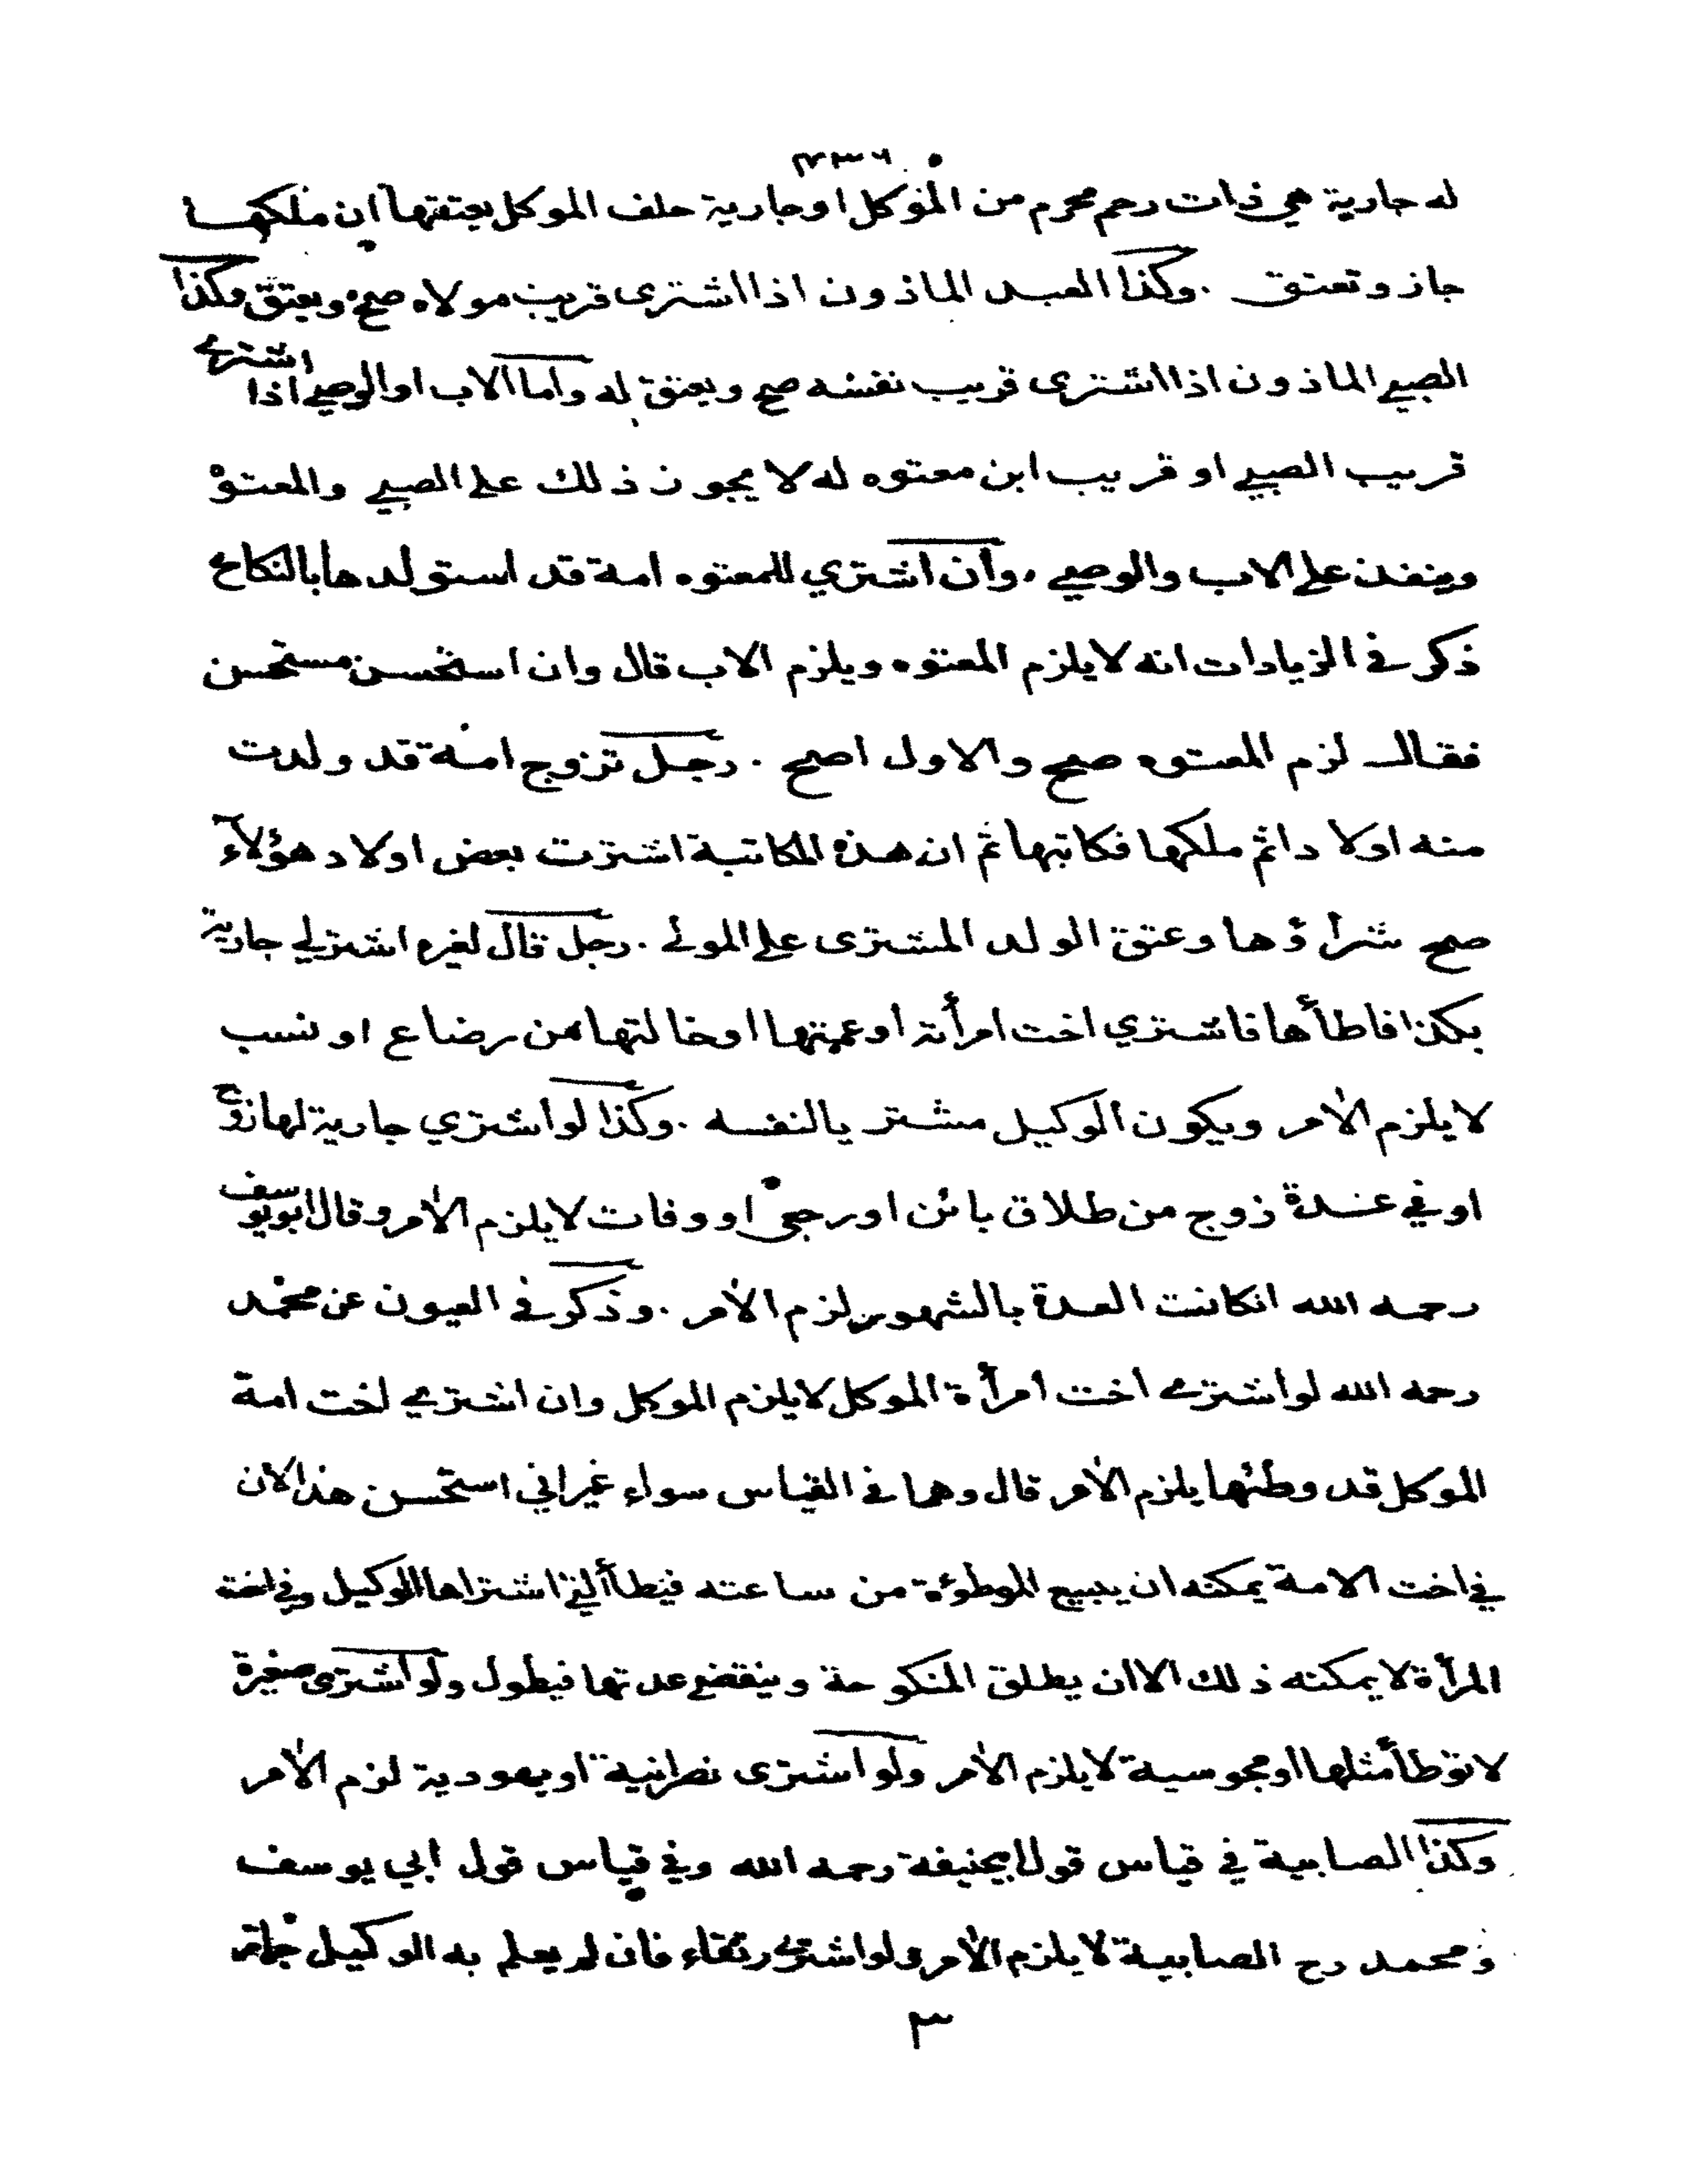 ٣٣٦
له جارية هي ذات رحم محرم من الموكل او جارية حلف الموكل بعتقها ان ملكها
جاز وتعتق . وكذا العبد الماذون اذا اشترى قريب مولاه صح ويعتق وكذا
الصبي الماذون اذا اشترى قريب نفسه صح ويعتق له واما الاب او الوصي اذا اشترى
قريب الصبي او قريب ابن معتوه له لا يجوز ذلك على الصبي والمعتوه
وينفذ على الاب والوصي . وان اشتري للمعتوه امة قد استولدها بالنكاح
ذكر في الزيادات انه لا يلزم المعتوه ويلزم الاب قال وان استحسن مستحسن
فقال لزم المعتوه صح والاول اصح . رجل تزوج امة قد ولدت
منه اولادا ثم ملكها فكاتبها ثم ان هذه المكاتبة اشترت بعض اولاد هؤلاء
صح شراؤها وعتق الولد المشترى على المولى . رجل قال لغيره اشتر لي جارية
بكذا فاطأها فاشتري اخت امرأته او عمتها او خالتها من رضاع او نسب
لا يلزم الأمر ويكون الوكيل مشتر يالنفسه . وكذا لو اشتري جارية لها زوج
او في عدة زوج من طلاق بائن او رجعى او وفات لا يلزم الأمر وقال ابو يوسف
رحمه الله انكانت العدة بالشهور لزم الأمر . وذكر في العيون عن محمد
رحمه الله لو اشترى اخت امرأة الموكل لا يلزم الموكل وان اشترى اخت امة
الموكل قد وطئها يلزم الأمر قال وهما في القياس سواء غير اني استحسن هذا لان
في اخت الامة يمكنه ان يبيع الموطوءة من ساعته فيطأ التي اشتراها الوكيل وفي اخت
المرأة لا يمكنه ذلك الا ان يطلق المنكوحة وينقضي عدتها فيطول ولو اشترى صغيرة
لا توطأ مثلها او مجوسية لا يلزم الأمر ولو اشترى نصرانية او يهودية لزم الأمر
وكذا الصابية في قياس قول ابيحنيفة رحمه الله وفي قياس قول ابي يوسف
ومحمد رح الصابية لا يلزم الأمر ولو اشترى رتقاء فان لم يعلم به الوكيل جاز
٣